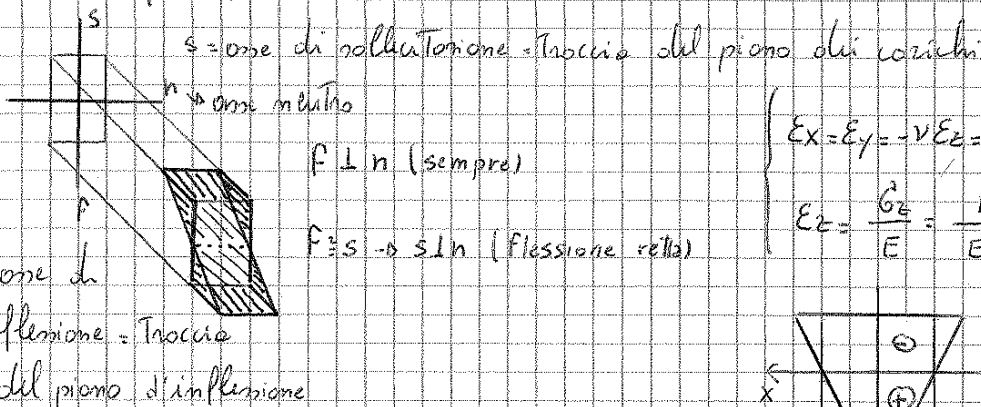 s
s = asse di sollecitazione = Traccia del piano dei carichi
n → asse neutro
εx = εy = -νεz =
f ⊥ n (sempre)
f
εz = σz / E =
f ≡ s → s ⊥ n (flessione retta)
asse di
flessione = Traccia
del piano d'inflessione
⊖
x
⊕